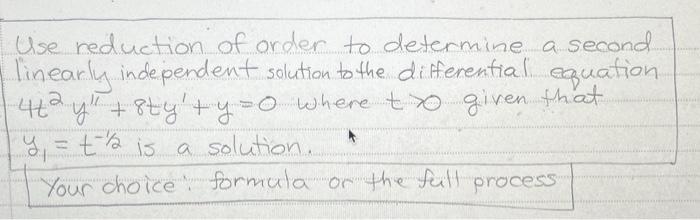 Use reduction of order to determine a second
linearly independent solution to the differential equation
4t² y" + 8ty' + y = 0 where t>0 given that
y₁ = t^-1/2 is a solution.
Your choice: formula or the full process